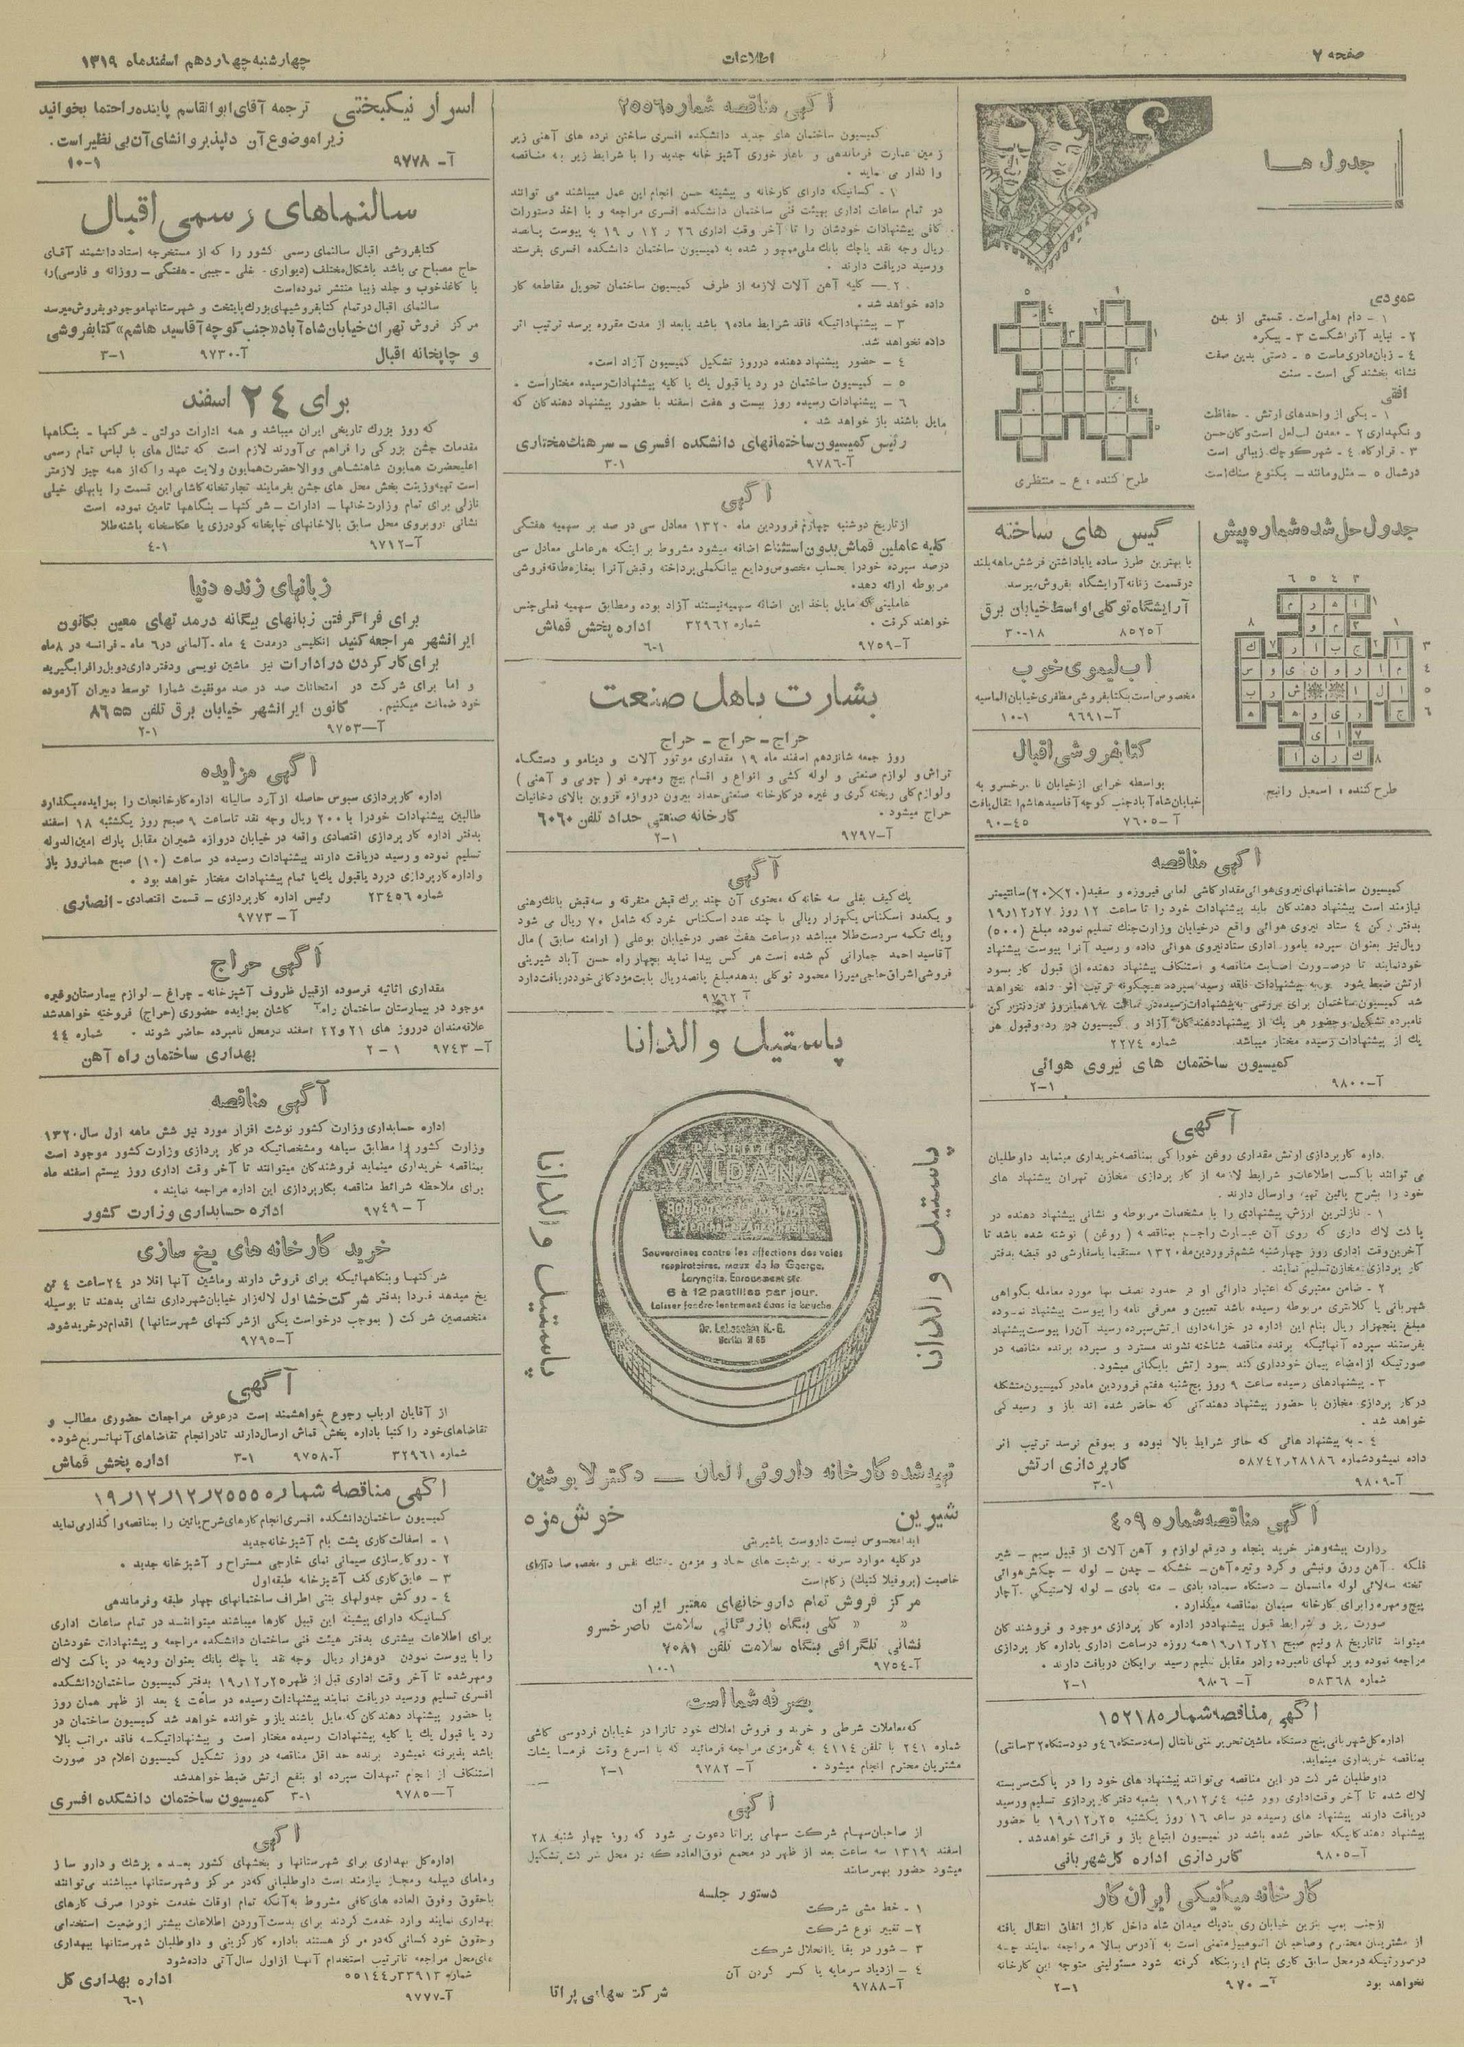 صفحه ۷
اطلاعات
چهارشنبه چهاردهم اسفندماه ۱۳۱۹
جدول ها
عمودی
۱ - دام اهلی است. قسمتی از بدن
۲ - نباید آنرا شکست ۳ - پیکره
۴ - زبان مادری ماست ۵ - دستی بدین صفت
نشانه بخشندگی است - سنت
افقی
۱ - یکی از واحدهای ارتش - حفاظت
۳ - قرارگاه ۴ - شهر کوچک زیبائی است
درشمال ۵ - مثل و مانند - یکنوع سنگ است
طرح کننده : ع - منتظری
جدول حل شده شماره پیش
طرح کننده : اسمعیل رانیم
گیس های ساخته
با بهترین طرز ساده یا باداشتن فرشش ماهه بلند
درقسمت زنانه آرایشگاه بفروش میرسد
آرایشگاه توکلی اواسط خیابان برق
آ ۸۵۲۵ ۱۸-۳۰
اب لیموی خوب
مخصوص است بکتابفروشی مظفری خیابان الماسیه
آ- ۹۶۹۱ ۱-۱۰
کتابفروشی اقبال
بواسطه خرابی از خیابان ناصرخسرو به
خیابان شاه آباد جنب کوچه آقاسید هاشم انتقال یافت
آ- ۷۶۰۵ ۴۵-۹۰
آگهی مناقصه
کمیسیون ساختمانهای نیروی هوائی مقدار کاشی لعابی فیروزه و سفید (۲۰×۲۰) سانتیمتر
نیازمند است پیشنهاد دهندگان باید پیشنهادات خود را تا ساعت ۱۲ روز ۱۹/۱۲/۲۷
بدفتر رکن ۴ ستاد نیروی هوائی واقع درخیابان وزارت جنگ تسلیم نموده مبلغ (۵۰۰)
ریال نیز بعنوان سپرده بامور اداری ستاد نیروی هوائی داده و رسید آنرا پیوست پیشنهاد
خود نمایند تا درصورت اصابت مناقصه و استنکاف پیشنهاد دهنده از قبول کار بسود
ارتش ضبط شود
یک از پیشنهادات رسیده مختار میباشد. شماره ۲۲۷۴
کمیسیون ساختمان های نیروی هوائی
آ-۹۸۰۰ ۱-۲
آگهی
اداره کارپردازی ارتش مقداری روغن خوراکی بمناقصه خریداری مینماید داوطلبان
می توانند باکسب اطلاعات و شرایط لازمه از کار پردازی مخازن تهران پیشنهاد های
خود را بشرح پائین تهیه و ارسال دارند.
۱ - نازلترین ارزش پیشنهادی را با مشخصات مربوطه و نشانی پیشنهاد دهنده در
پاکت لاک داری که روی آن عبارت راجع بمناقصه (روغن) نوشته شده باشد تا
آخرین وقت اداری روز چهارشنبه ششم فروردین ماه ۱۳۲۰ مستقیما یا سفارشی دو قبضه بدفتر
کار پردازی مخازن تسلیم نمایند.
۲ - ضامن معتبری که اعتبار دارائی او در حدود نصف بها مورد معامله بگواهی
شهربانی یا کلانتری مربوطه رسیده باشد تعیین و معرفی نامه را پیوست پیشنهاد نموده
مبلغ پنجهزار ریال بنام این اداره در خزانه داری ارتش سپرده رسید آن را پیوست پیشنهاد
بفرستند سپرده آنهائیکه برنده مناقصه شناخته نشوند مسترد و سپرده برنده مناقصه در
صورتیکه از امضاء پیمان خودداری کند بسود ارتش بایگانی میشود.
۳ - پیشنهادهای رسیده ساعت ۹ روز پنجشنبه هفتم فروردین ماه در کمیسیون متشکله
درکار پردازی مخازن با حضور پیشنهاد دهندگانی که حاضر شده اند باز و رسیدگی
خواهد شد.
۴ - به پیشنهاد هائی که حائز شرایط بالا نبوده و بموقع نرسد ترتیب اثر
داده نمیشود شماره ۵۸۷۴۲/۲۸۱۸۶ کارپردازی ارتش
آ-۹۸۰۹ ۱-۳
آگهی مناقصه شماره ۴۰۹
وزارت پیشه و هنر خرید پنجاه و دو قلم لوازم و آهن آلات از قبیل سیم - شیر
فلکه - آهن ورق و نبشی و گرد و تیرآهن - خشکه - چدن - لوله - چکش هوائی
پیچ و مهره را برای کارخانه سیمان بمناقصه میگذارد.
صورت ریز و شرایط قبول پیشنهاد در اداره کار پردازی موجود و فروشندگان
میتوانند تا تاریخ ۸ ونیم صبح ۱۹/۱۲/۲۱ همه روزه درساعت اداری باداره کار پردازی
مراجعه نموده و برگهای نامبرده را در مقابل تسلیم رسید برایگان دریافت دارند.
شماره ۵۸۳۶۸ آ- ۹۸۰۶ ۱-۲
آگهی مناقصه شماره ۱۵۲۱۸۵
اداره کل شهربانی پنج دستگاه ماشین تحریر کنتی ناتال (سه دستگاه ۴۶ و دو دستگاه ۳۲ سانتی)
بمناقصه خریداری مینماید.
داوطلبان شرکت در این مناقصه می توانند پیشنهاد های خود را در پاکت سربسته
لاک شده تا آخر وقت اداری روز شنبه ۱۹/۱۲/۲۴ بشعبه دفتر کارپردازی تسلیم و رسید
دریافت دارند پیشنهاد های رسیده در ساعت ۱۶ روز یکشنبه ۱۹/۱۲/۲۵ با حضور
پیشنهاد دهندگانیکه حاضر شده باشند در کمیسیون ابتیاع باز و قرائت خواهد شد.
آ-۹۸۰۵ کارپردازی اداره کل شهربانی
کارخانه میکانیکی ایران کار
از جنب پمپ بنزین خیابان ری نزدیک میدان شاه داخل گاراژ اتفاق انتقال یافته
از مشتریان محترم و صاحبان اتومبیل متمنی است به آدرس بالا مراجعه نمایند چه
درصورتیکه درمحل سابق کاری بنام این بنگاه گرفته شود مسئولیتی متوجه این کارخانه
نخواهد بود آ- ۹۷۰ ۱-۲
آگهی مناقصه شماره ۲۵۵۶۰
کمیسیون ساختمان های جدید دانشکده افسری ساختن نرده های آهنی زیر
زمین عمارت فرماندهی و ناهار خوری آشپز خانه جدید را با شرایط زیر به مناقصه
وا گذار می نماید.
۱ - کسانیکه دارای کارخانه و پیشینه حسن انجام این عمل میباشند می توانند
در تمام ساعات اداری بهیئت فنی ساختمان دانشکده افسری مراجعه و با اخذ دستورات
کافی پیشنهادات خودشان را تا آخر وقت اداری ۲۶ / ۱۲ / ۱۹ به پیوست پانصد
ریال وجه نقد یا چک بانک ملی ممهور شده به کمیسیون ساختمان دانشکده افسری بفرستند
ورسید دریافت دارند.
۲ - کلیه آهن آلات لازمه از طرف کمیسیون ساختمان تحویل مقاطعه کار
داده خواهد شد.
۳ - پیشنهاداتیکه فاقد شرایط ماده ۱ باشد یا بعد از مدت مقرره برسد ترتیب اثر
داده نخواهد شد.
۴ - حضور پیشنهاد دهنده در روز تشکیل کمیسیون آزاد است.
۵ - کمیسیون ساختمان در رد یا قبول یک یا کلیه پیشنهادات رسیده مختار است.
۶ - پیشنهادات رسیده روز بیست و هفت اسفند با حضور پیشنهاد دهندگان که
مایل باشند باز خواهد شد.
رئیس کمیسیون ساختمانهای دانشکده افسری - سرهنگ مختاری
آ-۹۷۸۶ ۱-۳
آگهی
از تاریخ دوشنبه چهارم فروردین ماه ۱۳۲۰ معادل سی در صد بر سهمیه هفتگی
کلیه عاملین قماش بدون استثناء اضافه میشود مشروط بر اینکه هر عاملی معادل سی
درصد سپرده خود را بحساب مخصوص ودایع ببانک ملی پرداخته و قبض آنرا بمغازه طاقه فروشی
مربوطه ارائه دهد.
عاملینی که مایل باخذ این اضافه سهمیه نیستند آزاد بوده و مطابق سهمیه فعلی جنس
خواهند گرفت. شماره ۳۲۹۶۲ اداره پخش قماش
آ-۹۷۵۹ ۱-۶
بشارت باهل صنعت
حراج - حراج - حراج
روز جمعه شانزدهم اسفند ماه ۱۹ مقداری موتور آلات و دینامو و دستگاه
تراش و لوازم صنعتی و لوله کشی و انواع و اقسام پیچ و مهره نو (چوبی و آهنی)
ولوازم کلی ریخته گری و غیره در کارخانه صنعتی حداد بیرون دروازه قزوین بالای دخانیات
حراج میشود. کارخانه صنعتی حداد تلفن ۶۰۶۰
آ-۹۷۹۷ ۱-۲
آگهی
یک کیف بغلی سه خانه که محتوی آن چند برک قبض متفرقه و سه قبض بانک رهنی
و یکعدد اسکناس یکهزار ریالی با چند عدد اسکناس خرد که شامل ۷۰ ریال می شود
ویک تکمه سردست طلا میباشد درساعت هفت عصر درخیابان بوعلی (ارامنه سابق) مال
آقاسید احمد جمارانی گم شده است هر کس پیدا نماید بچهار راه حسن آباد شیرینی
فروشی اشراق حاجی میرزا محمود توکلی بدهد مبلغ پانصد ریال بابت مژدگانی خود دریافت دارد
آ ۹۷۶۲
پاستیل والدانا
پاستیل والدانا
پاستیل والدانا
PASTILLES
VALDANA
Souveraines contre les affections des voies
respiratoires, maux de la Gorge,
Laryngite, Enrouement etc.
6 à 12 pastilles par jour.
Laisser fondre lentement dans la bouche
Dr. Laboschin A.-G.
Berlin N 65
تهیه شده کارخانه داروئی المان - دکتر لابوشین
شیرین خوش مزه
ابدا محسوس نیست داروست یا شیرینی
درکلیه موارد سرفه - برنشیت های حاد و مزمن - تنگ نفس و مخصوصا دارای
خاصیت (پروفیلاکتیک) زکام است
مرکز فروش تمام داروخانهای معتبر ایران
» » کلی بنگاه بازرگانی سلامت ناصر خسرو
نشانی تلگرافی بنگاه سلامت تلفن ۷۰۸۱
آ-۹۷۵۴ ۱-۱۰
بصرفه شما است
که معاملات شرطی و خرید و فروش املاک خود تانرا در خیابان فردوسی کاشی
شماره ۲۴۱ با تلفن ۴۱۱۴ به هرمزی مراجعه فرمائید که با اسرع وقت فرمایشات
مشتریان محترم انجام میشود. آ- ۹۷۸۲ ۱-۲
آگهی
از صاحبان سهام شرکت سهامی پراتا دعوت می شود که روز چهار شنبه ۲۸
اسفند ۱۳۱۹ سه ساعت بعد از ظهر در مجمع فوق العاده که در محل شرکت تشکیل
میشود حضور بهمرسانند
دستور جلسه
۱ - خط مشی شرکت
۲ - تغییر نوع شرکت
۳ - شور در بقا یا انحلال شرکت
۴ - ازدیاد سرمایه یا کسر کردن آن
آ-۹۷۸۸ شرکت سهامی پراتا
اسرار نیکبختی ترجمه آقای ابوالقاسم پاینده را حتما بخوانید
زیرا موضوع آن دلپذیر و انشای آن بی نظیر است.
آ- ۹۷۷۸ ۱-۱۰
سالنماهای رسمی اقبال
کتابفروشی اقبال سالنمای رسمی کشور را که از مستخرجه استاد دانشمند آقای
حاج مصباح می باشد باشکال مختلف (دیواری - بغلی - جیبی - هفتگی - روزانه و فارسی) را
با کاغذ خوب و جلد زیبا منتشر نموده است
سالنمای اقبال درتمام کتابفروشیهای بزرگ پایتخت و شهرستانها موجود و بفروش میرسد
مرکز فروش تهران خیابان شاه آباد «جنب کوچه آقا سید هاشم» کتابفروشی
و چاپخانه اقبال آ-۹۷۳۰ ۱-۳
برای ۲۴ اسفند
که روز بزرک تاریخی ایران میباشد و همه ادارات دولتی - شرکتها - بنگاهها
مقدمات جشن بزرگی را فراهم می آورند لازم است که تمثال های با لباس تمام رسمی
اعلیحضرت همایون شاهنشاهی و والا حضرت همایون ولایت عهد را که از همه چیز لازمتر
است تهیه و زینت بخش محل های جشن بفرمایند تجارتخانه کاشانی این قسمت را با بهای خیلی
نازلی برای تمام وزارتخانها - ادارات - شرکتها - بنگاهها تامین نموده است
نشانی : روبروی محل سابق بالاخانهای چاپخانه گودرزی یا عکاسخانه پاشنه طلا
آ-۹۷۱۲ ۱-۴
زبانهای زنده دنیا
برای فراگرفتن زبانهای بیگانه درمدتهای معین بکانون
ایرانشهر مراجعه کنید انگلیسی درمدت ۴ ماه - آلمانی در ۶ ماه - فرانسه در ۸ ماه
برای کار کردن در ادارات نیز ماشین نویسی و دفترداری دوبل را فرا بگیرید
و اما برای شرکت در امتحانات صد در صد موفقیت شما را توسط دبیران آزموده
خود ضمانت میکنیم. کانون ایرانشهر خیابان برق تلفن ۸۶۵۵
آ-۹۷۵۳ ۱-۲
آگهی مزایده
اداره کارپردازی سبوس حاصله از آرد سالیانه اداره کارخانجات را بمزایده میگذارد
طالبین پیشنهادات خود را با ۲۰۰ ریال وجه نقد تا ساعت ۹ صبح روز یکشنبه ۱۸ اسفند
بدفتر اداره کار پردازی اقتصادی واقعه در خیابان دروازه شمیران مقابل پارک امین الدوله
تسلیم نموده و رسید دریافت دارند پیشنهادات رسیده در ساعت (۱۰) صبح همانروز باز
واداره کارپردازی دررد یا قبول یک یا تمام پیشنهادات مختار خواهد بود.
شماره ۲۳۴۵۶ رئیس اداره کارپردازی - قسمت اقتصادی - انصاری
آ - ۹۷۷۳
آگهی حراج
مقداری اثاثیه فرسوده از قبیل ظروف آشپزخانه - چراغ - لوازم بیمارستان و غیره
موجود در بیمارستان ساختمان راه کاشان بمزایده حضوری (حراج) فروخته خواهد شد
علاقه مندان در روز های ۲۱ و ۲۲ اسفند در محل نامبرده حاضر شوند. شماره ۴۴
آ- ۹۷۴۳ ۱-۲ بهداری ساختمان راه آهن
آگهی مناقصه
اداره حسابداری وزارت کشور نوشت افزار مورد نیز شش ماهه اول سال ۱۳۲۰
وزارت کشور را مطابق سیاهه و مشخصاتیکه در کار پردازی وزارت کشور موجود است
بمناقصه خریداری مینماید فروشندگان میتوانند تا آخر وقت اداری روز بیستم اسفند ماه
برای ملاحظه شرائط مناقصه بکارپردازی این اداره مراجعه نمایند.
آ - ۹۷۴۹ اداره حسابداری وزارت کشور
خرید کارخانه های یخ سازی
شرکتها و بنگاههائیکه برای فروش دارند و ماشین آنها اقلا در ۲۴ ساعت ۴ تن
یخ میدهد فردا بدفتر شرکت خشا اول لاله زار خیابان شهرداری نشانی بدهند تا بوسیله
متخصصین شرکت (بموجب درخواست یکی از شرکتهای شهرستانها) اقدام در خرید شود.
آ-۹۷۹۵
آگهی
از آقایان ارباب رجوع خواهشمند است درعوض مراجعات حضوری مطالب و
تقاضاهای خود را کتبا باداره پخش قماش ارسال دارند تا در انجام تقاضاهای آنها تسریع شود.
شماره ۳۲۹۶۱ آ-۹۷۵۸ ۱-۳ اداره پخش قماش
آگهی مناقصه شماره ۱۹/۱۲/۱۲/۲۵۵۵
کمیسیون ساختمان دانشکده افسری انجام کارهای شرح پائین را بمناقصه واگذاری نماید
۱ - اسفالت کاری پشت بام آشپزخانه جدید
۲ - روکارسازی سیمانی نمای خارجی مستراح و آشپزخانه جدید.
۳ - عایق کاری کف آشپزخانه طبقه اول
۴ - روکش جدولهای بتنی اطراف ساختمانهای چهار طبقه و فرماندهی
کسانیکه دارای پیشینه این قبیل کارها میباشند میتوانند در تمام ساعات اداری
برای اطلاعات بیشتری بدفتر هیئت فنی ساختمان دانشکده مراجعه و پیشنهادات خودشان
را با پیوست نمودن دوهزار ریال وجه نقد یا چک بانک بعنوان ودیعه در پاکت لاک
ومهر شده تا آخر وقت اداری قبل از ظهر ۱۹/۱۲/۲۵ بدفتر کمیسیون ساختمان دانشکده
افسری تسلیم ورسید دریافت نمایند پیشنهادات رسیده در ساعت ۴ بعد از ظهر همان روز
با حضور پیشنهاد دهندگان که مایل باشند باز و خوانده خواهد شد کمیسیون ساختمان در
رد یا قبول یک یا کلیه پیشنهادات رسیده مختار است و پیشنهاداتیکه فاقد مراتب بالا
باشد پذیرفته نمیشود برنده حد اقل مناقصه در روز تشکیل کمیسیون اعلام در صورت
استنکاف از انجام تعهدات سپرده او بنفع ارتش ضبط خواهد شد
آ-۹۷۸۵ ۱-۳ کمیسیون ساختمان دانشکده افسری
آگهی
اداره کل بهداری برای شهرستانها و بخشهای کشور بعده پزشک و دارو ساز
ومامای دیپلمه ومجاز نیازمند است داوطلبانی که در مرکز و شهرستانها میباشند می توانند
باحقوق وفوق العاده های کافی مشروط به آنکه تمام اوقات خدمت خود را صرف کارهای
بهداری نمایند وارد خدمت گردند برای بدست آوردن اطلاعات بیشتر از وضعیت استخدامی
وحقوق خود کسانی که در مرکز هستند باداره کارگزینی و داوطلبان شهرستانها ببهداری
های محل مراجعه تا ترتیب استخدام آنها از اول سال آتی داده شود
شماره ۵۵۱۴۴/۳۳۹۱۳ اداره بهداری کل
آ-۹۷۷۷ ۱-۶